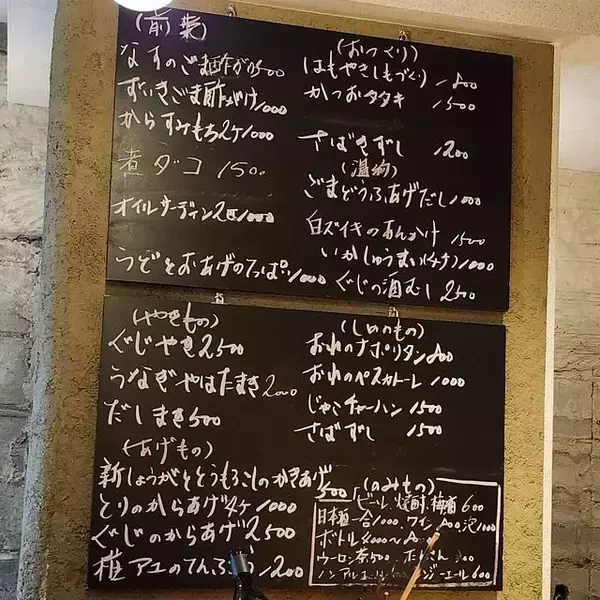 (前菜)
なすのごま酢がけ500
ずいきごま酢がけ1000
からすみもち2ケ1000
煮ダコ 1500
オイルサーディン2匹1000
うどとおあげのてっぱい1000
(おつくり)
はもやきしもづくり 1800
かつおタタキ 1500
さばきずし 1200
(温物)
ごまどうふあげだし1000
白ズイキのあんかけ 1500
いかしゅうまい(4ケ)1000
ぐじの酒むし2500
(やきもの)
ぐじやき2500
うなぎやはたまき2000
だしまき500
(あげもの)
新しょうがととうもろこしのかきあげ
500
とりのからあげ4ケ1000
ぐじのからあげ2500
稚アユのてんぷら1200
(しめのもの)
おれのナポリタン800
おれのペスカトーレ1000
じゃこチャーハン1500
さばずし 1500
(のみもの)
ビール、焼酎、梅酒600
日本酒一合1000、ワイン 泡1000
ボトル4000〜
ウーロン茶500
ノンアル ジンジーエール600